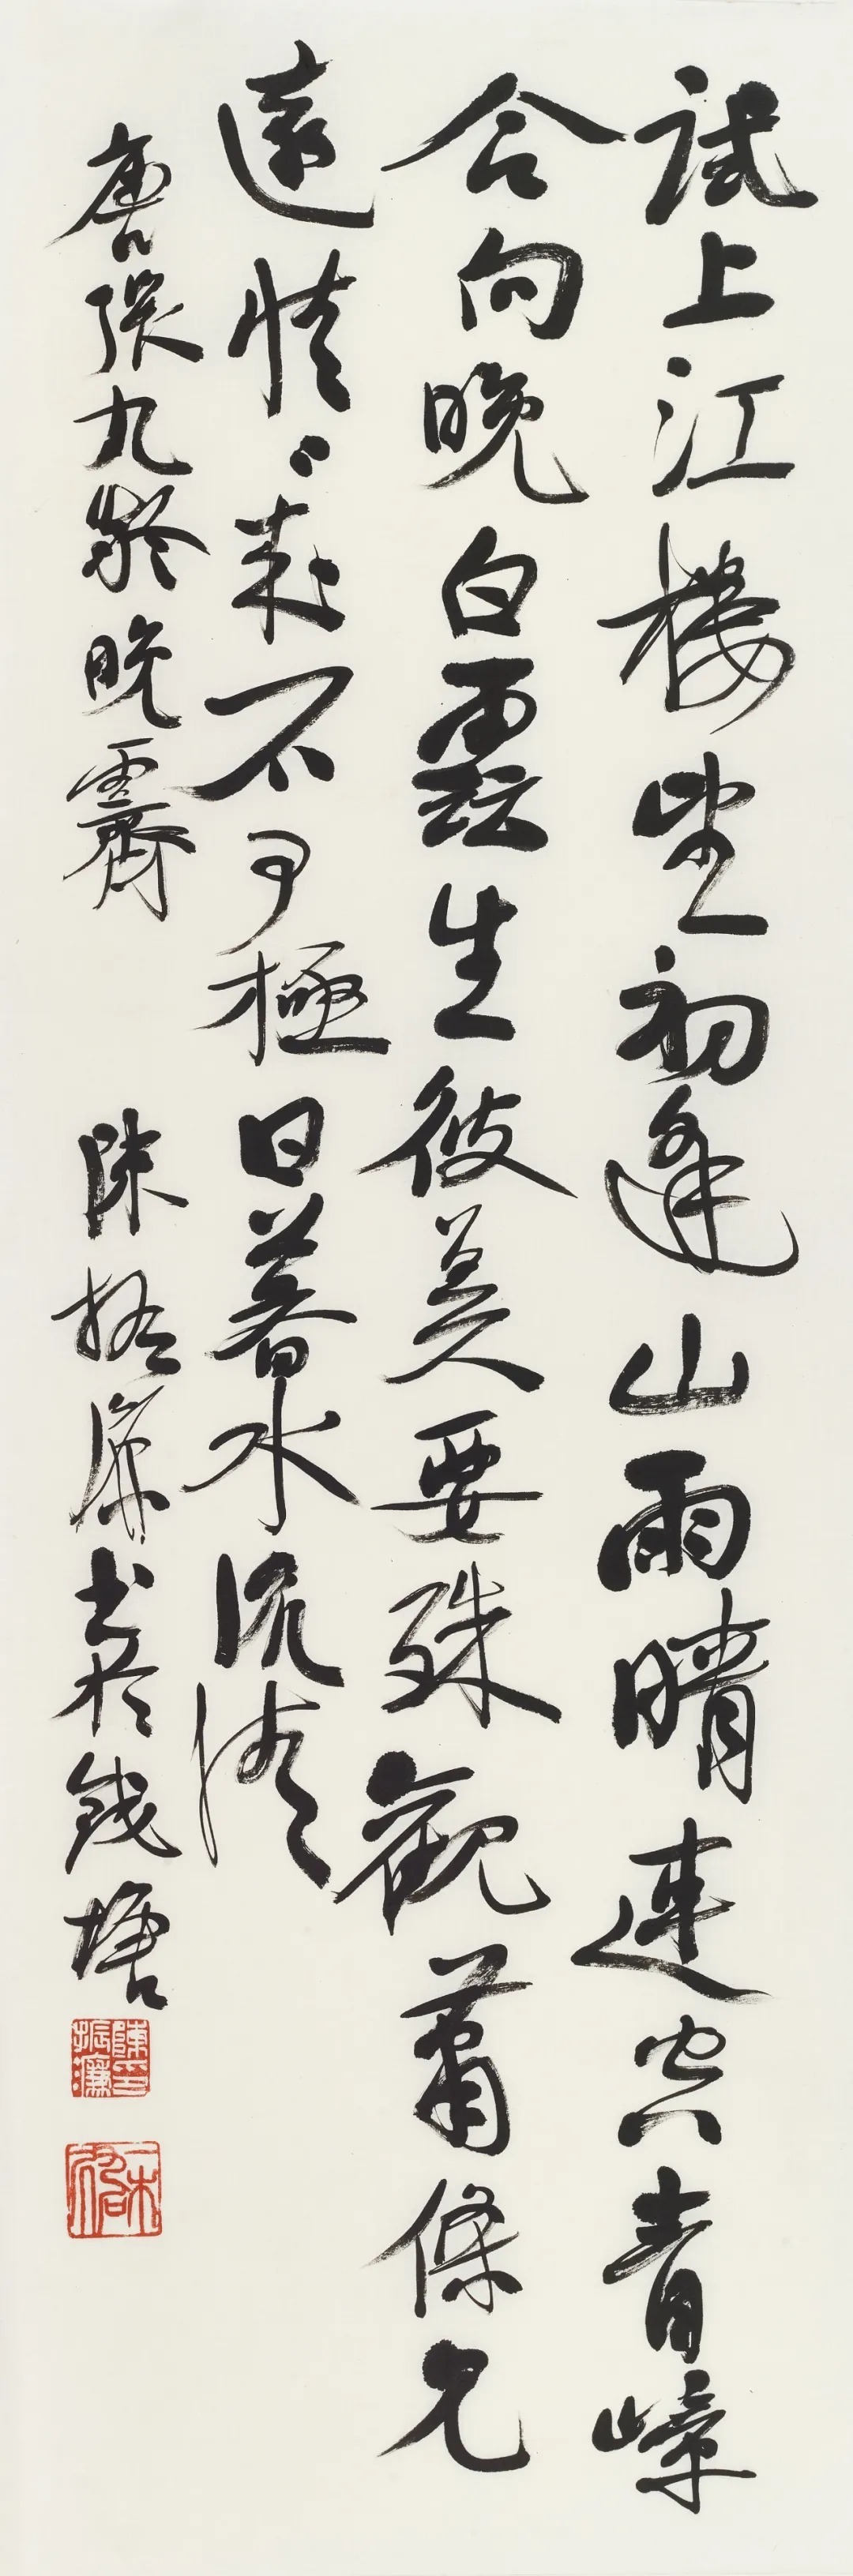 試上江樓望初逢山雨晴連空青嶂
合向晚白雲生彼美要殊觀蕭條見
遠情〻來不可極日暮水流清
唐張九齡晚霽 陳振濂書於錢塘
陳振濂印